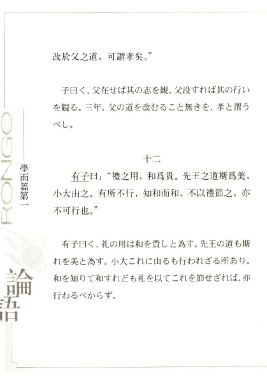 改於父之道，可謂孝矣。”
子曰く、父在せば其の志を観、父没すれば其の行い
を観る。三年、父の道を改むること無きを、孝と謂う
べし。
十二
有子曰：“禮之用，和爲貴。先王之道斯爲美，
小大由之。有所不行，知和而和，不以禮節之，亦
不可行也。”
有子曰く、礼の用は和を貴しと為す。先王の道も斯
れを美と為す。小大これに由るも行われざる所あり。
和を知りて和すれども礼を以てこれを節せざれば、亦
行わるべからず。
RONGO
學而篇第一
論語